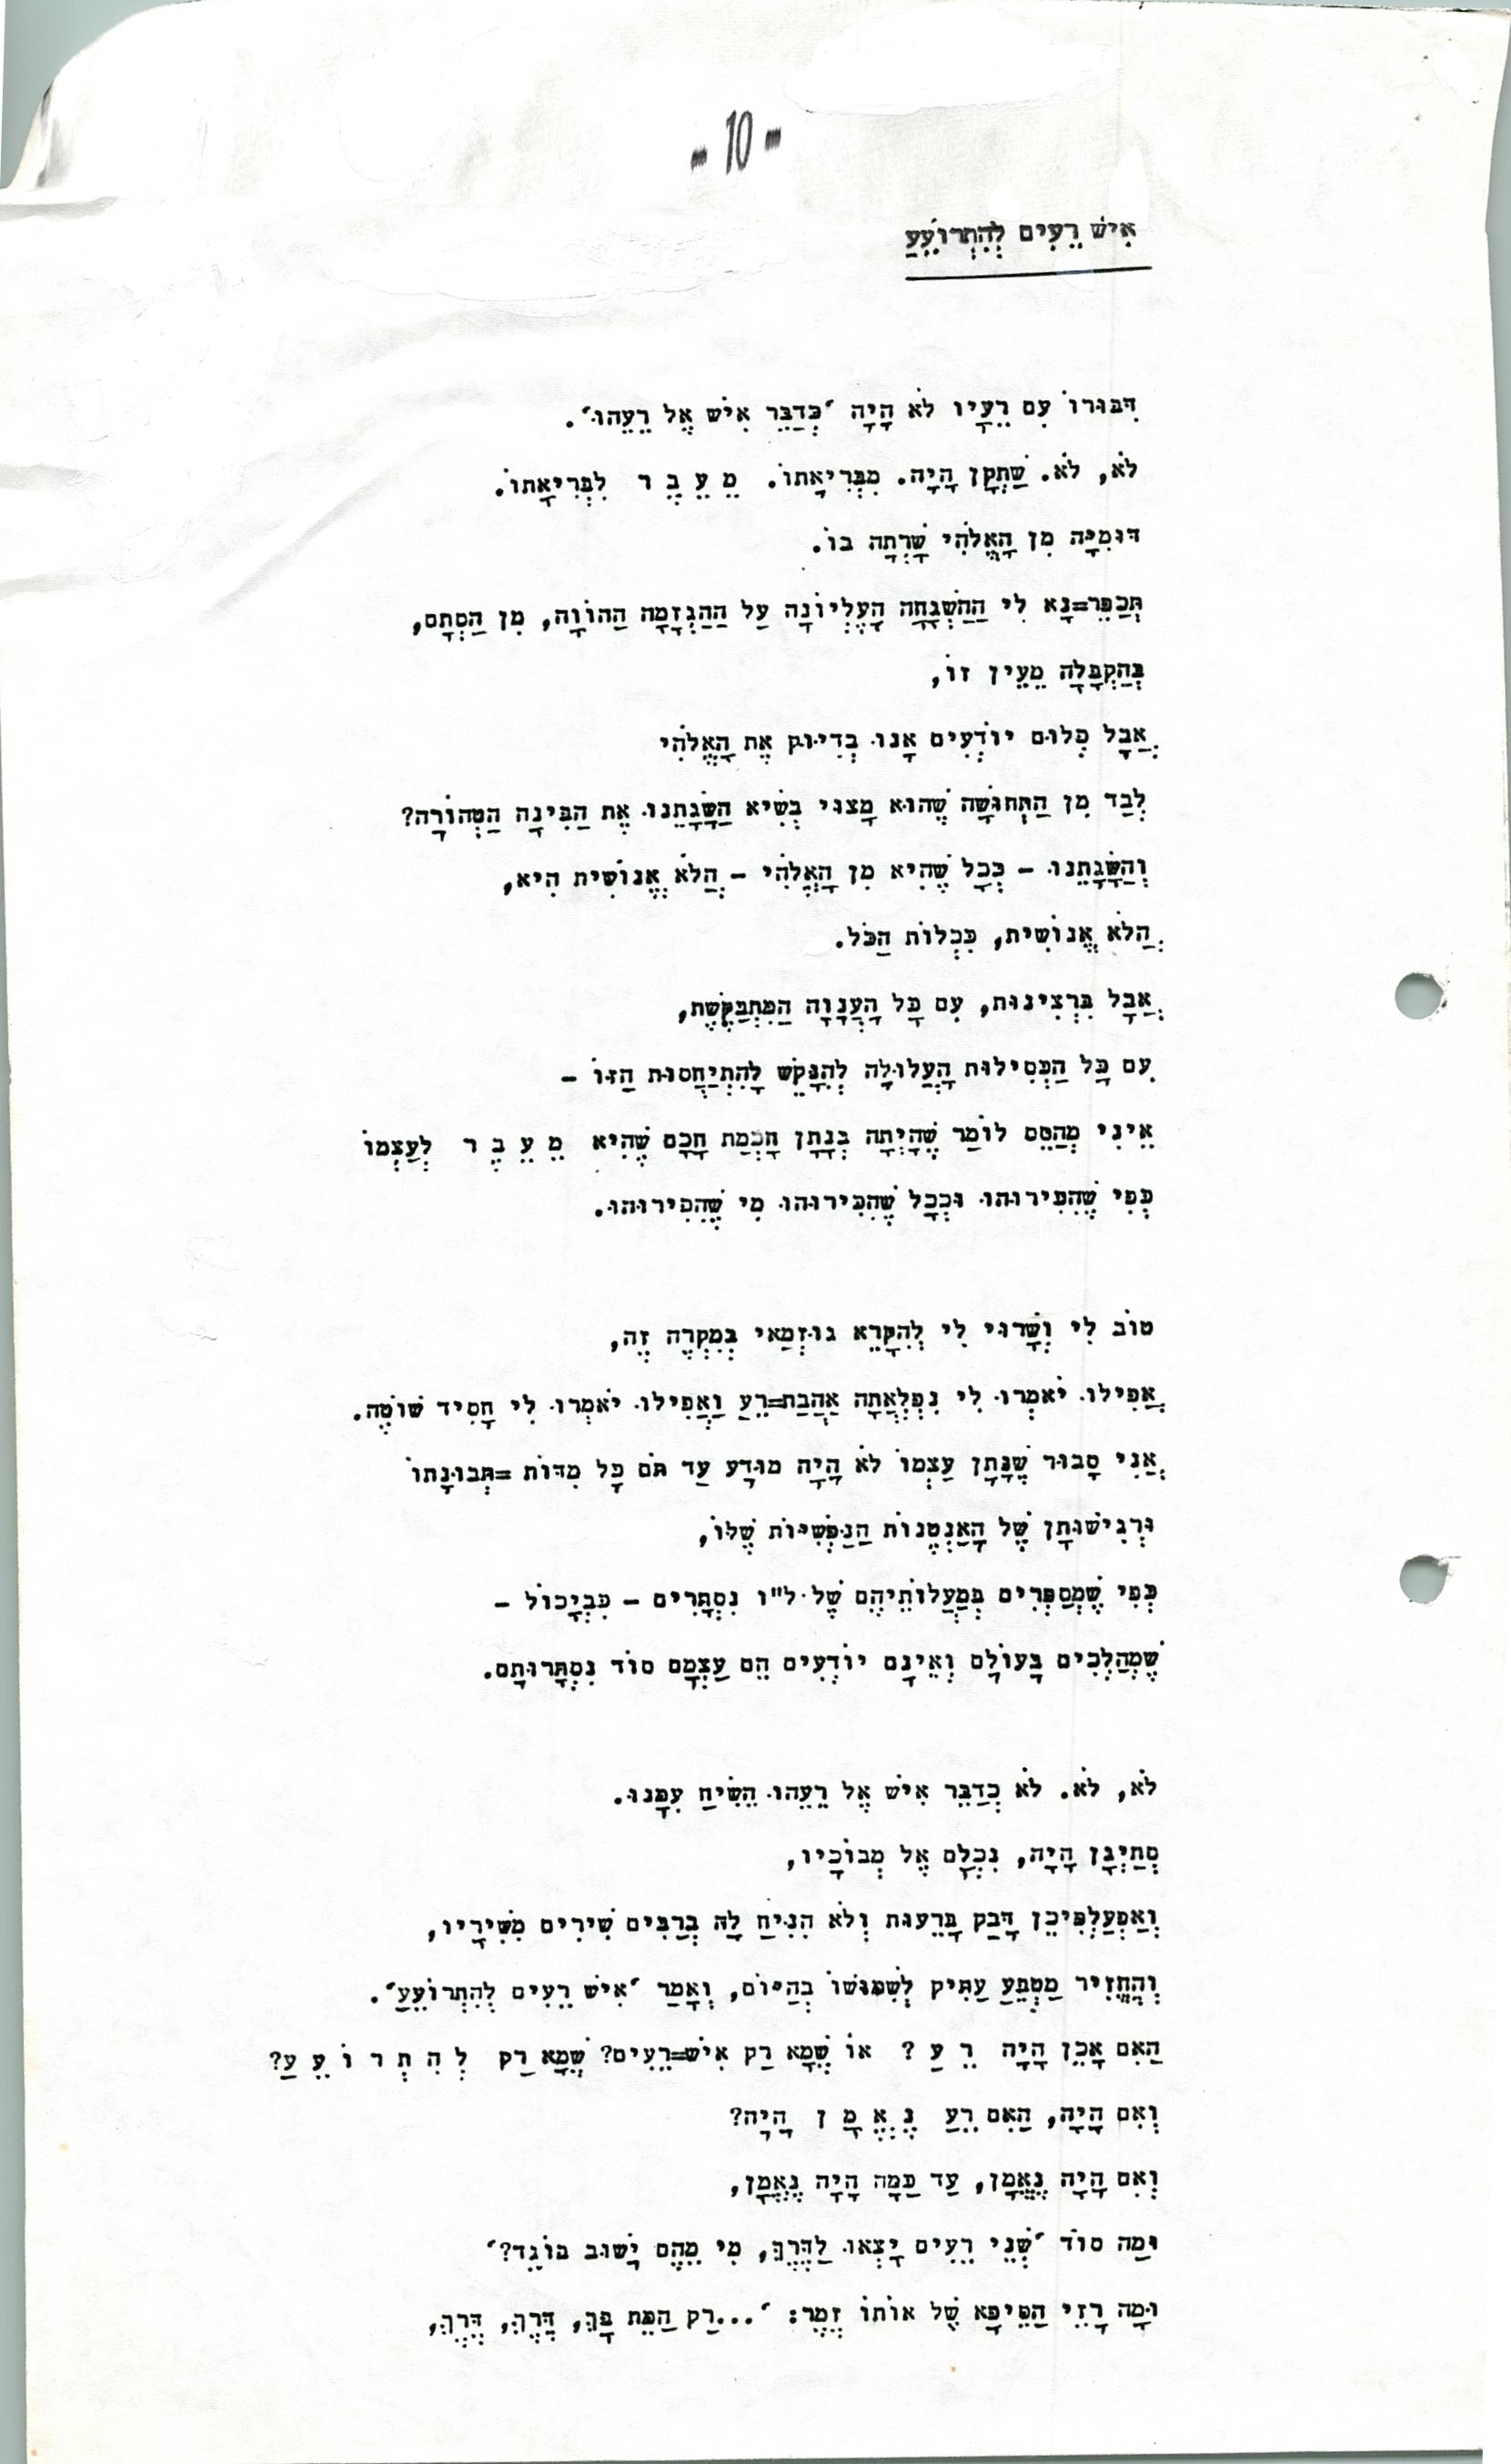 - 10 -
אִישׁ רֵעִים לְהִתְרוֹעֵעַ
דִּבּוּרוֹ עִם רֵעָיו לֹא הָיָה "כְּדַבֵּר אִישׁ אֶל רֵעֵהוּ".
לֹא, לֹא. שַׁתְקָן הָיָה. מִבְּרִיאָתוֹ. מֵ עֵ בֶ ר לִבְּרִיאָתוֹ.
דּוּמִיָּה מִן הָאֱלֹהִי שָׁרְתָה בוֹ.
תְּכַפֵּר=נָא לִי הַהַשְׁגָּחָה הָעֶלְיוֹנָה עַל הַהַגְזָמָה הַהוֹוָה, מִן הַסְּתָם,
בְּהַקְבָּלָה מֵעֵין זוֹ,
אֲבָל כְּלוּם יוֹדְעִים אָנוּ בְּדִיּוּק אֶת הָאֱלֹהִי
לְבַד מִן הַתְּחוּשָׁה שֶׁהוּא מָצוּי בְּשִׂיא הַשָּׂגָתֵנוּ אֶת הַבִּינָה הַטְּהוֹרָה?
וְהַשָּׂגָתֵנוּ - כְּכָל שֶׁהִיא מִן הָאֱלֹהִי - הֲלֹא אֱנוֹשִׁית הִיא,
הֲלֹא אֱנוֹשִׁית, כִּכְלוֹת הַכֹּל.
אֲבָל בִּרְצִינוּת, עִם כָּל הָעֲנָוָה הַמִּתְבַּקֶּשֶׁת,
עִם כָּל הַכְּסִילוּת הָעֲלוּלָה לְהִנָּקֵשׁ לָהִתְיַחֲסוּת הַזּוֹ -
אֵינִי מְהַסֵּס לוֹמַר שֶׁהָיְתָה בְּנָתָן חָכְמַת חָכָם שֶׁהִיא מֵ עֵ בֶ ר לְעַצְמוֹ
כְּפִי שֶׁהִכִּירוּהוּ וּכְכָל שֶׁהִכִּירוּהוּ מִי שֶׁהִכִּירוּהוּ.
טוֹב לִי וְשָׁרוּי לִי לְהִקָּרֵא גוּזְמַאי בְּמִקְרֶה זֶה,
אֲפִילוּ יֹאמְרוּ לִי נִפְלְאָתָה אַהֲבַת=רֵעַ וַאֲפִילוּ יֹאמְרוּ לִי חָסִיד שׁוֹטֶה.
אֲנִי סָבוּר שֶׁנָּתָן עַצְמוֹ לֹא הָיָה מוּדָע עַד תֹּם כָּל מִדּוֹת =תְּבוּנָתוֹ
וּרְגִישׁוּתָן שֶׁל הָאַנְטֶנוֹת הַנַּפְשִׁיּוֹת שֶׁלּוֹ,
כְּפִי שֶׁמְּסַפְּרִים בְּמַעֲלוֹתֵיהֶם שֶׁל ל"ו נִסְתָּרִים - כִּבְיָכוֹל -
שֶׁמְּהַלְּכִים בָּעוֹלָם וְאֵינָם יוֹדְעִים הֵם עַצְמָם סוֹד נִסְתָּרוּתָם.
לֹא, לֹא. לֹא כְּדַבֵּר אִישׁ אֶל רֵעֵהוּ הֵשִׂיחַ עִמָּנוּ.
סְתַיְגָן הָיָה, נִכְלָם אֶל מְבוֹכָיו,
וְאַפְעַלְפִּיכֵן דָּבַק בָּרֵעוּת וְלֹא הִנִּיחַ לָהּ בְּרַבִּים שִׁירִים מִשִּׁירָיו,
וְהֶחֱזִיר מַטְבֵּעַ עַתִּיק לְשִׁמּוּשׁוֹ בְּהַיּוֹם, וְאָמַר "אִישׁ רֵעִים לְהִתְרוֹעֵעַ".
הַאִם אָכֵן הָיָה רֵ עַ ? אוֹ שֶׁמָּא רַק אִישׁ=רֵעִים? שֶׁמָּא רַק לְ הִ תְ ר וֹ עֵ עַ?
וְאִם הָיָה, הַאִם רֵעַ נֶ אֱ מָ ן הָיָה?
וְאִם הָיָה נֶאֱמָן, עַד כַּמָּה הָיָה נֶאֱמָן,
וּמַה סוֹד "שְׁנֵי רֵעִים יָצְאוּ לַדֶּרֶךְ, מִי מֵהֶם יָשׁוּב בּוֹגֵד?"
וּמָה רָזֵי הַסֵּיפָא שֶׁל אוֹתוֹ זֶמֶר: "...רַק הַמֵּת בָּךְ, דֶּרֶךְ, דֶּרֶךְ,